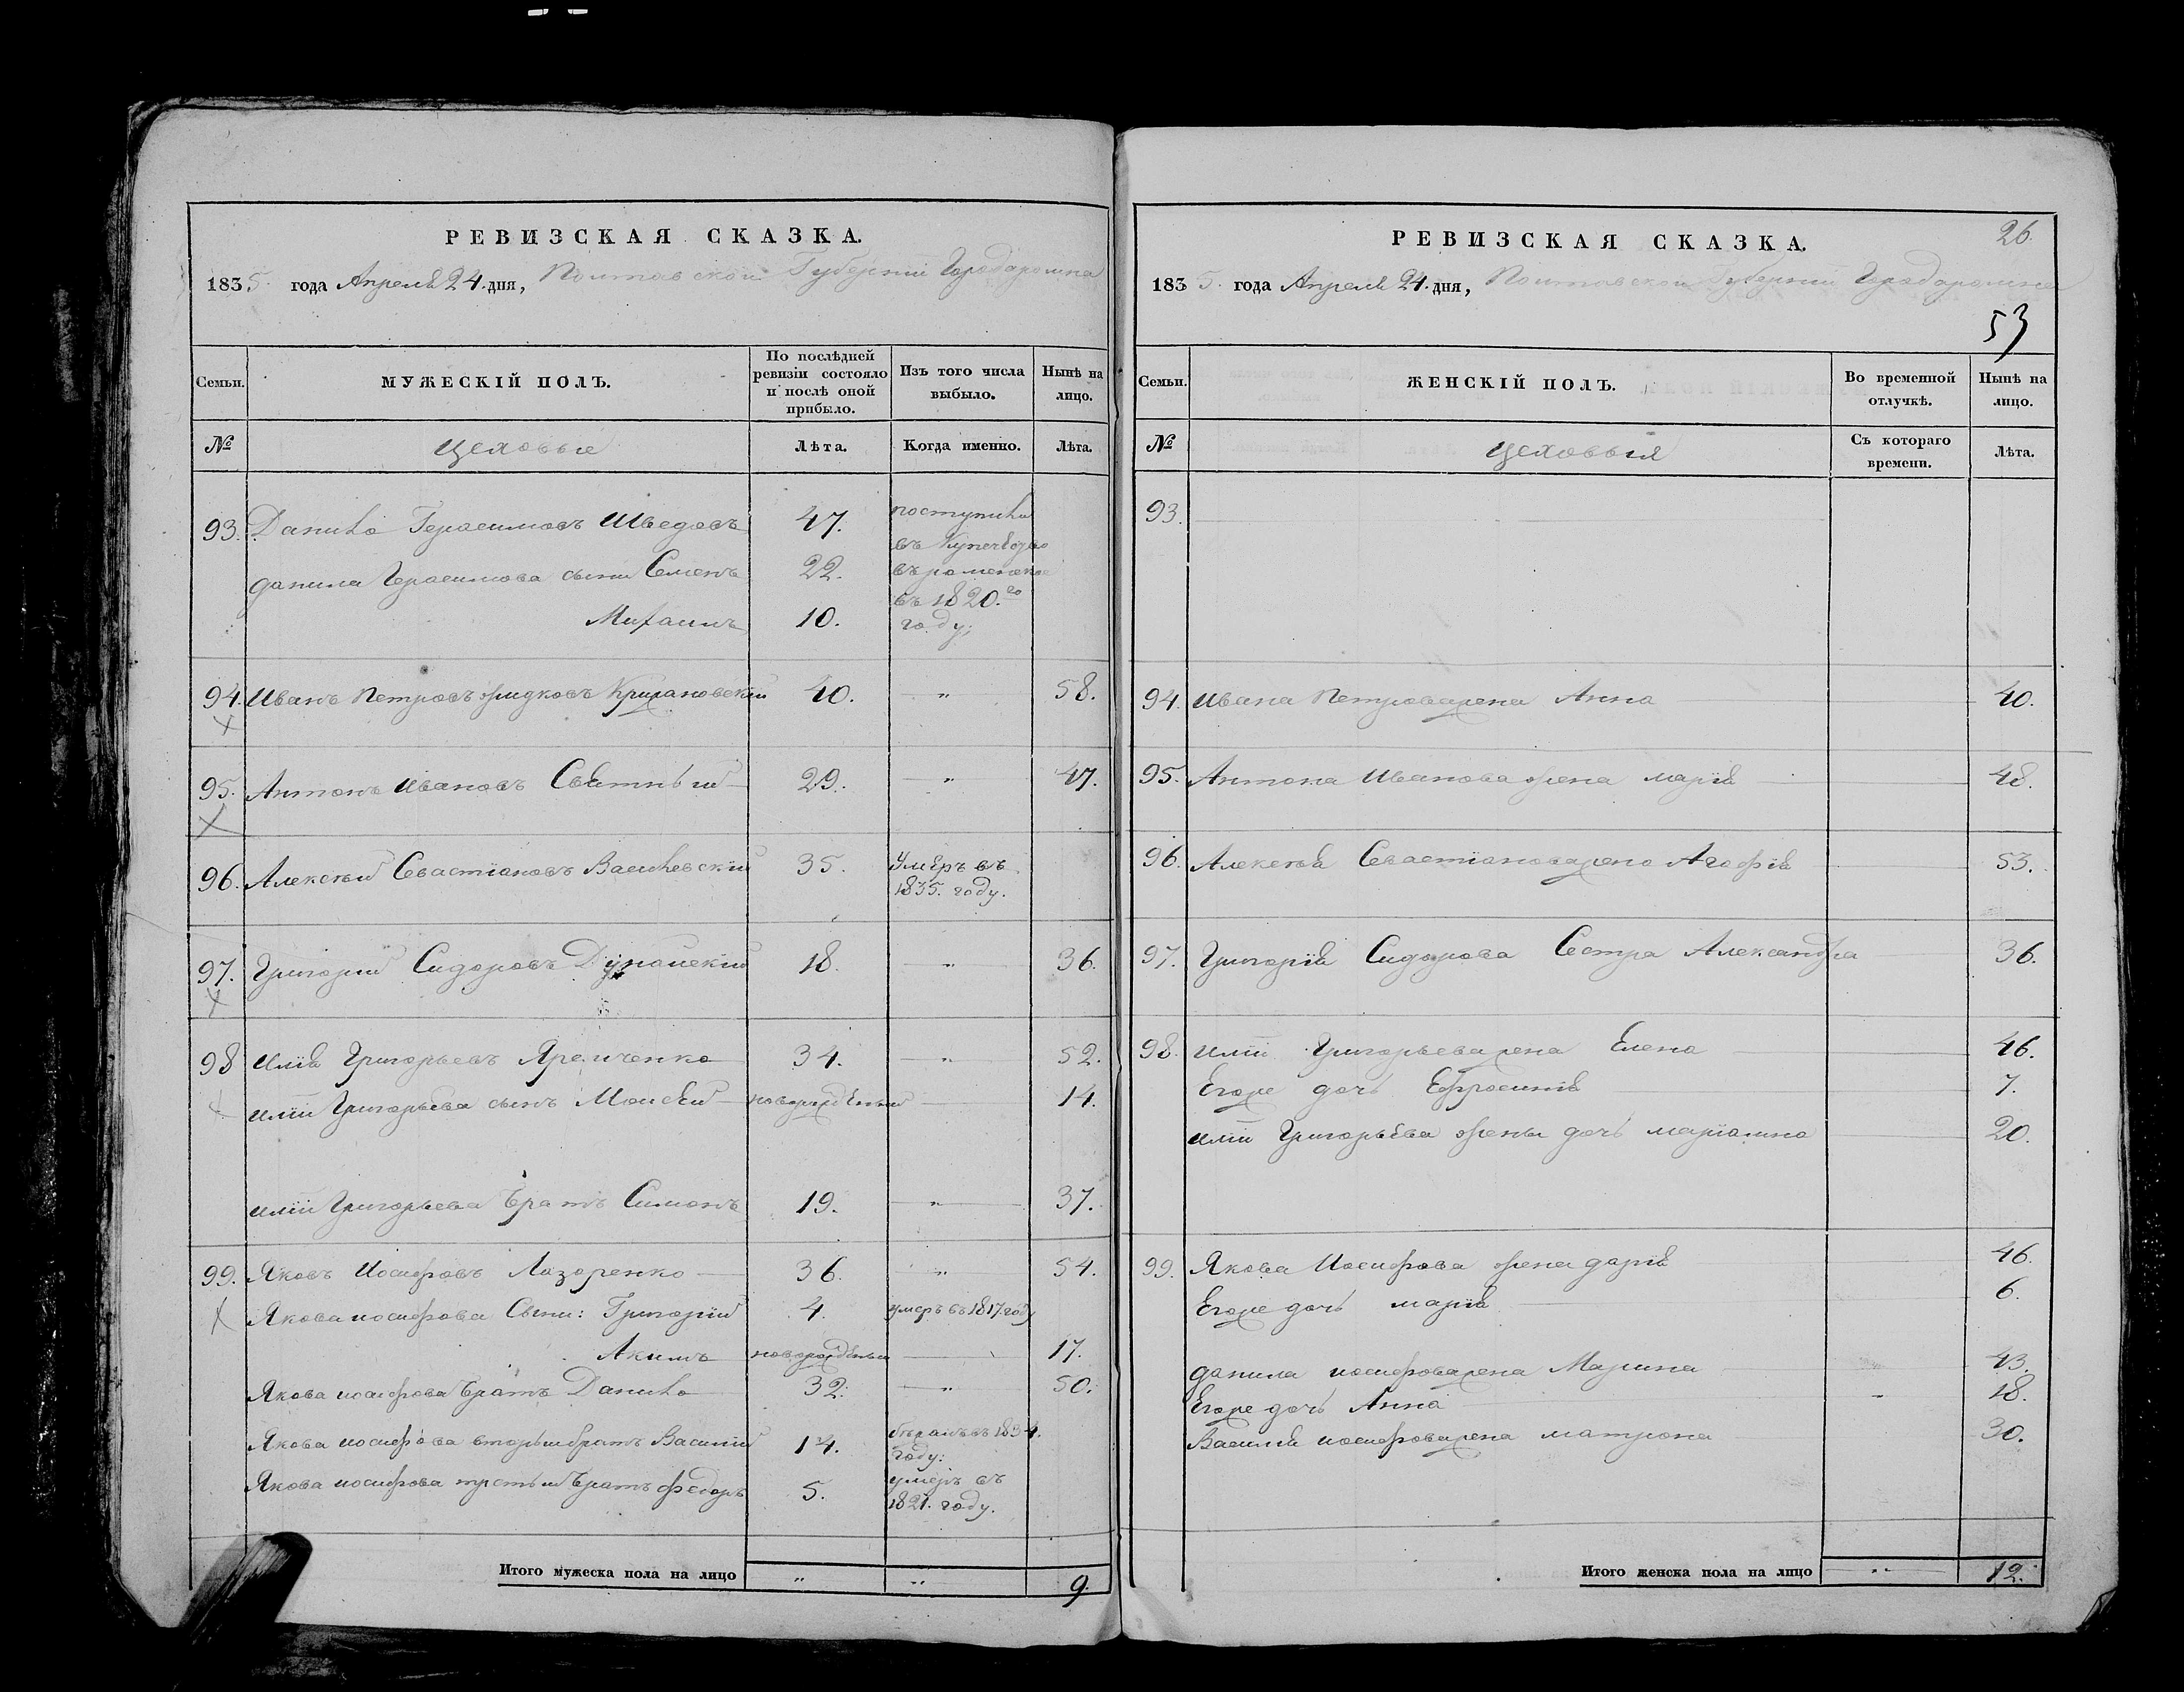 РЕВИЗСКАЯ СКАЗКА.
1835. года Апреля 24. дня, Полтавской Губерніи Города Ромна
Семьи.
МУЖЕСКІЙ ПОЛЪ.
По послѣдней ревизіи состояло и послѣ оной прибыло.
Изъ того числа выбыло.
Нынѣ на лицо.
№
Цеховые
Лѣта.
Когда именно.
Лѣта.
93. Данило Герасимовъ Шведовъ 47. поступили
въ Купечество
данила Герасимова сыни Семенъ 22. въ роменское
въ 1820.го
Михаилъ 10. году;
94. Иванъ Петровъ Крижановский 40. „ 58.
95. Антонъ Ивановъ 29. „ 47.
96. Алексѣй Севастіановъ Василевскій 35. Умеръ въ
1835. году.
97. Григорий Сидоровъ Дунайский 18. „ 36.
98 Илія Григорьевъ Яремченко 34. „ 52.
иліи Григорьева сынъ Моисей новорожденный 14.
иліи Григорьева братъ Симонъ 19. „ 37.
99. Яковъ Иосифовъ Лазаренко 36. „ 54.
Якова иосифова Сыни: Григорий 4. умеръ въ 1817 году
Акимъ новорожденный 17.
Якова иосифова братъ Данило 32. „ 50.
Якова иосифова вторый братъ Василий 14. въ 1834.
году.
Якова иосифова третый братъ федоръ 5. умеръ въ
1821. году.
Итого мужеска пола на лицо „ „ 9.
26.
РЕВИЗСКАЯ СКАЗКА.
1835. года Апреля 24. дня, Полтавской Губерніи Города Ромна
53
Семьи.
ЖЕНСКІЙ ПОЛЪ.
Во временной отлучкѣ.
Нынѣ на лицо.
№
Цеховыя
Съ котораго времени.
Лѣта.
93.
94. Ивана Петрова жена Анна 40.
95. Антона Иванова жена марія 48.
96. Алексѣя Севастіанова жена Агафія 53.
97. Григорія Сидорова Сестра Александра 36.
98. иліи Григорьева жена Елена 46.
Егоже дочь Ефросинія 7.
иліи Григорьева жены дочь маріамна 20.
99. Якова Иосифова жена дарія 46.
Егоже дочь марія 6.
данила иосифова жена Марина 43.
Егоже дочь Анна 18.
Василія иосифова жена матрона 30.
Итого женска пола на лицо „ 12.